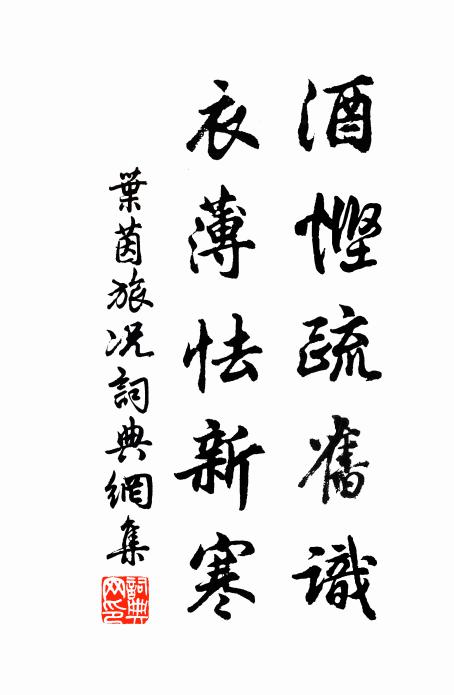 酒慳疏舊識
衣薄怯新寒
葉茵旅况詞典網集
詞典網印